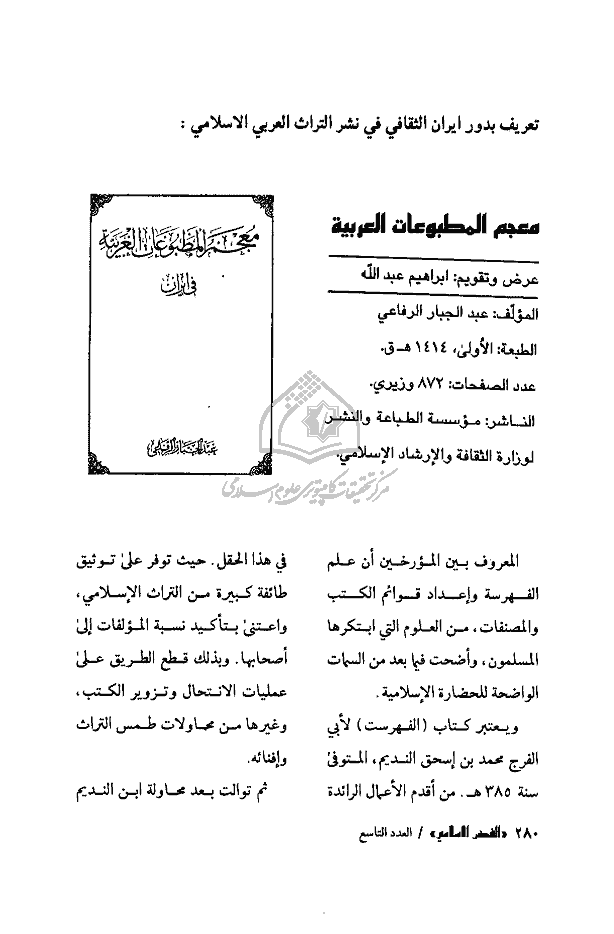 تعريف بدور ايران الثقافي في نشر التراث العربي الاسلامي :
معجم المطبوعات العربية
عرض وتقويم: ابراهيم عبد الله
المؤلّف: عبد الجبار الرفاعي
الطبعة: الأولىٰ، ١٤١٤ هـ‍ـ ق.
عدد الصفحات: ٨٧٢ وزيري.
الناشر: مؤسسة الطباعة والنشر
لوزارة الثقافة والإرشاد الإسلامي.
معجم المطبوعات العربية
في ايران
عبد الجبار الرفاعي
مركز تحقيقات كامپيوترى علوم اسلامى
المعروف بين المؤرخين أن علم
الفهرسة وإعداد قوائم الكتب
والمصنفات، من العلوم التي ابتكرها
المسلمون، وأضحت فيما بعد من السمات
الواضحة للحضارة الإسلامية.
ويعتبر كتاب (الفهرست) لأبي
الفرج محمد بن إسحق النديم، المتوفىٰ
سنة ٣٨٥ هـ. من أقدم الأعمال الرائدة
في هذا الحقل. حيث توفر علىٰ توثيق
طائفة كبيرة من التراث الإسلامي،
واعتنىٰ بتأكيد نسبة المؤلفات إلىٰ
أصحابها. وبذلك قطع الطريق علىٰ
عمليات الانتحال وتزوير الكتب،
وغيرها من محاولات طمس التراث
وإفنائه.
ثم توالت بعد محاولة ابن النديم
٢٨٠ «الفكر الاسلامي» / العدد التاسع